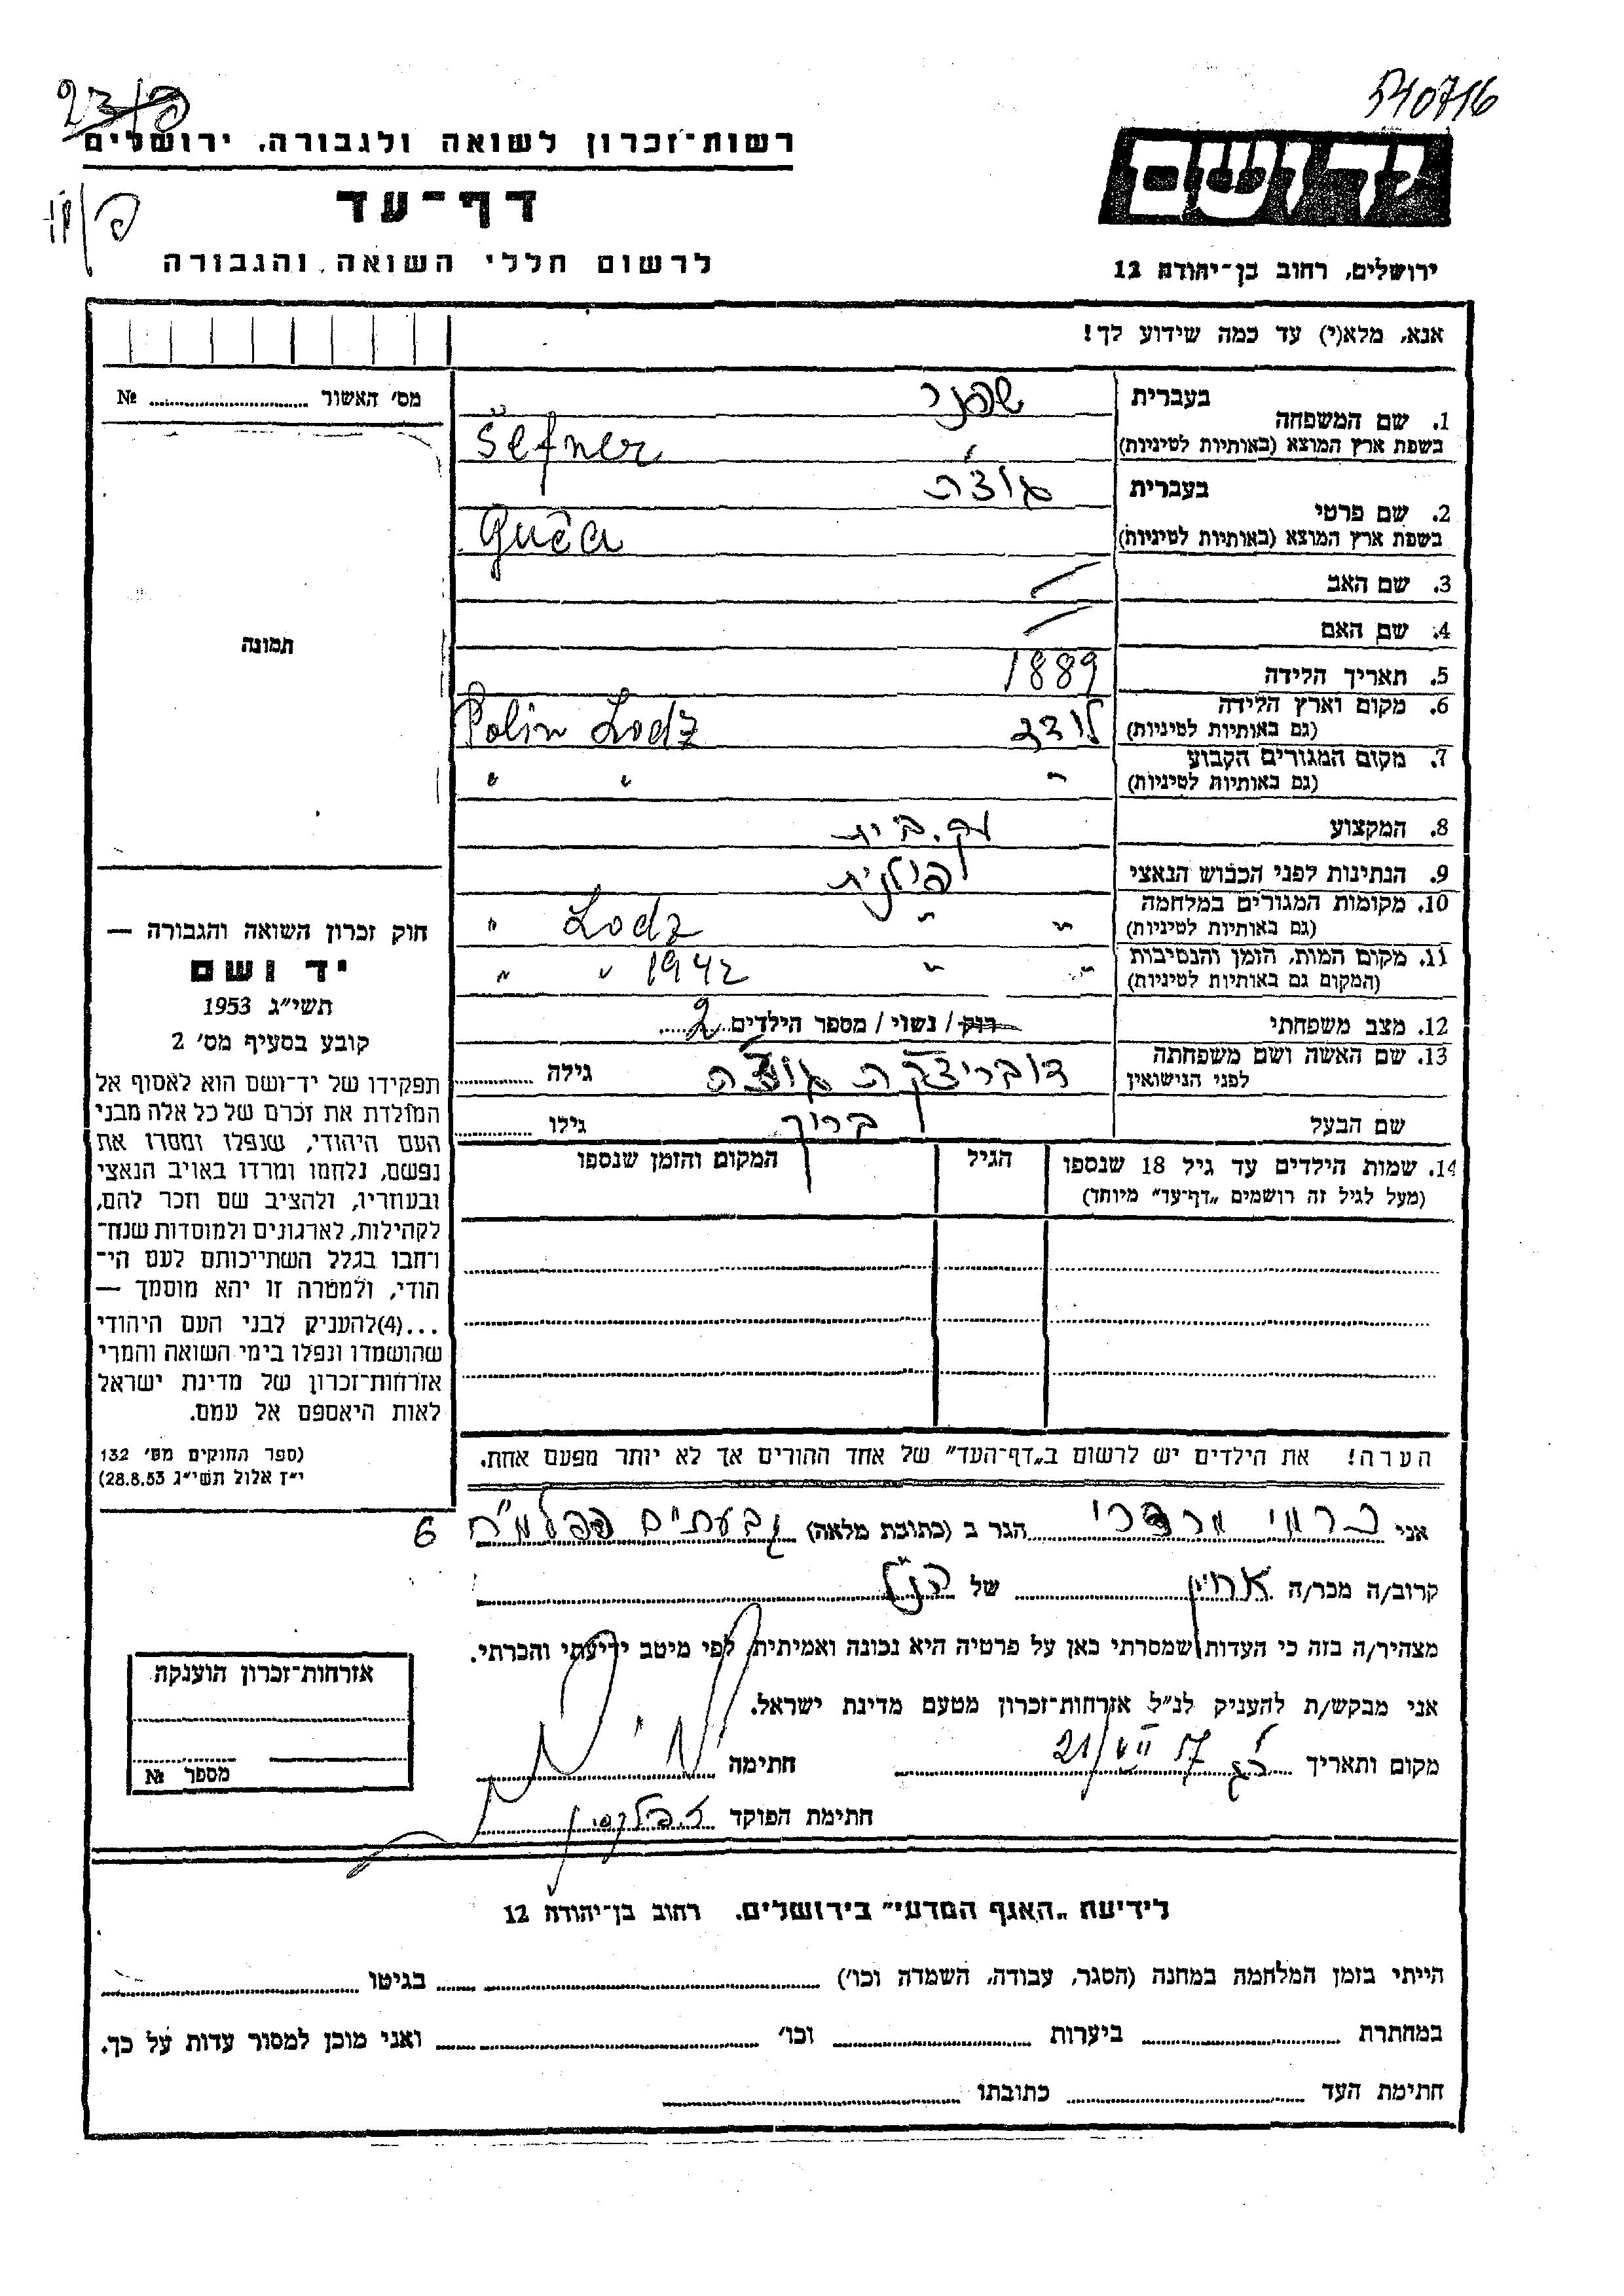 540716
23/פ
רשות־זכרון לשואה ולגבורה, ירושלים
יד ושם
דף־עד
לרשום חללי השואה והגבורה
ירושלים, רחוב בן־יהודה 12
אנא, מלא(י) עד כמה שידוע לך!
מס' האשור № ........
1. שם המשפחה בעברית שפנר
בשפת ארץ המוצא (באותיות לטיניות) Šefner
2. שם פרטי בעברית גוצ'ה
בשפת ארץ המוצא (באותיות לטיניות) Guča
3. שם האב /
4. שם האם /
תמונה
5. תאריך הלידה 1889
6. מקום וארץ הלידה (גם באותיות לטיניות) לודז Polin Lodz
7. מקום המגורים הקבוע (גם באותיות לטיניות) " " "
8. המקצוע עק. בית
9. הנתינות לפני הכבוש הנאצי פולנית
10. מקומות המגורים במלחמה (גם באותיות לטיניות) " " Lodz "
11. מקום המות, הזמן והנסיבות (המקום גם באותיות לטיניות) " " 1942 " "
12. מצב משפחתי רווק / נשוי / מספר הילדים 2
13. שם האשה ושם משפחתה לפני הנישואין גוצ'ה גילה ........
שם הבעל ברוך גילו ........
14. שמות הילדים עד גיל 18 שנספו הגיל המקום והזמן שנספו
(מעל לגיל זה רושמים „דף־עד" מיוחד)
חוק זכרון השואה והגבורה —
יד ושם
תשי"ג 1953
קובע בסעיף מס' 2
תפקידו של יד־ושם הוא לאסוף אל
המולדת את זכרם של כל אלה מבני
העם היהודי, שנפלו ומסרו את
נפשם, נלחמו ומרדו באויב הנאצי
ובעוזריו, ולהציב שם וזכר להם,
לקהילות, לארגונים ולמוסדות שנח־
רחבו בגלל השתייכותם לעם הי־
הודי, ולמטרה זו יהא מוסמך —
...(4)להעניק לבני העם היהודי
שהושמדו ונפלו בימי השואה והמרי
אזרחות־זכרון של מדינת ישראל
לאות היאספם אל עמם.
(ספר החוקים מס' 132
י"ז אלול תשי"ג 28.8.53)
הערה! את הילדים יש לרשום ב„דף־העד" של אחד ההורים אך לא יותר מפעם אחת.
אני כרמי מרדכי הגר ב (כתובת מלאה) גבעתיים הפלמ"ח 6
קרוב/ה מכר/ה אחיין של הנ"ל
מצהיר/ה בזה כי העדות שמסרתי כאן על פרטיה היא נכונה ואמיתית, לפי מיטב ידיעתי והכרתי.
אני מבקש/ת להעניק לנ"ל אזרחות־זכרון מטעם מדינת ישראל.
מקום ותאריך 21/VII 57 חתימה
חתימת הפוקד
אזרחות־זכרון הוענקה
מספר №
לידיעת „האגף המדעי" בירושלים. רחוב בן־יהודה 12
הייתי בזמן המלחמה במחנה (הסגר, עבודה, השמדה וכו') ........ בגיטו ........
במחתרת ........ ביערות ........ וכו' ........ ואני מוכן למסור עדות על כך.
חתימת העד ........ כתובתו ........